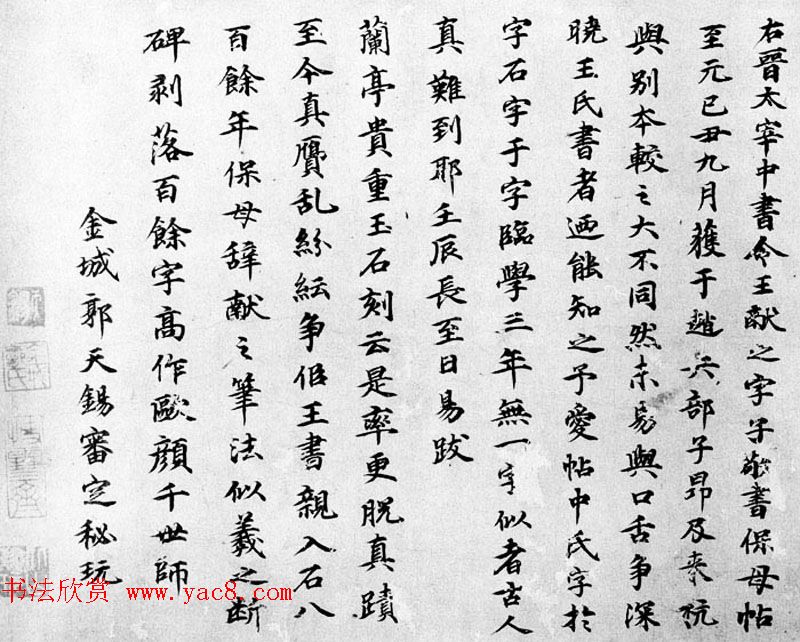 右晉太宰中書令王献之字子敬書保母帖
至元己丑九月獲于趙兵部子昂及来杭
與别本較之大不同然未易與口舌争深
曉王氏書者迺能知之予愛帖中氏字於
字石字于字臨學三年無一字似者古人
真難到耶壬辰長至日易跋
蘭亭貴重玉石刻云是率更脱真蹟
至今真贋乱紛紜争佀王書親入石八
百餘年保母辞献之筆法似羲之断
碑剥落百餘字高作歐顔千世師
金城郭天錫審定秘玩
书法欣赏 www.yac8.com